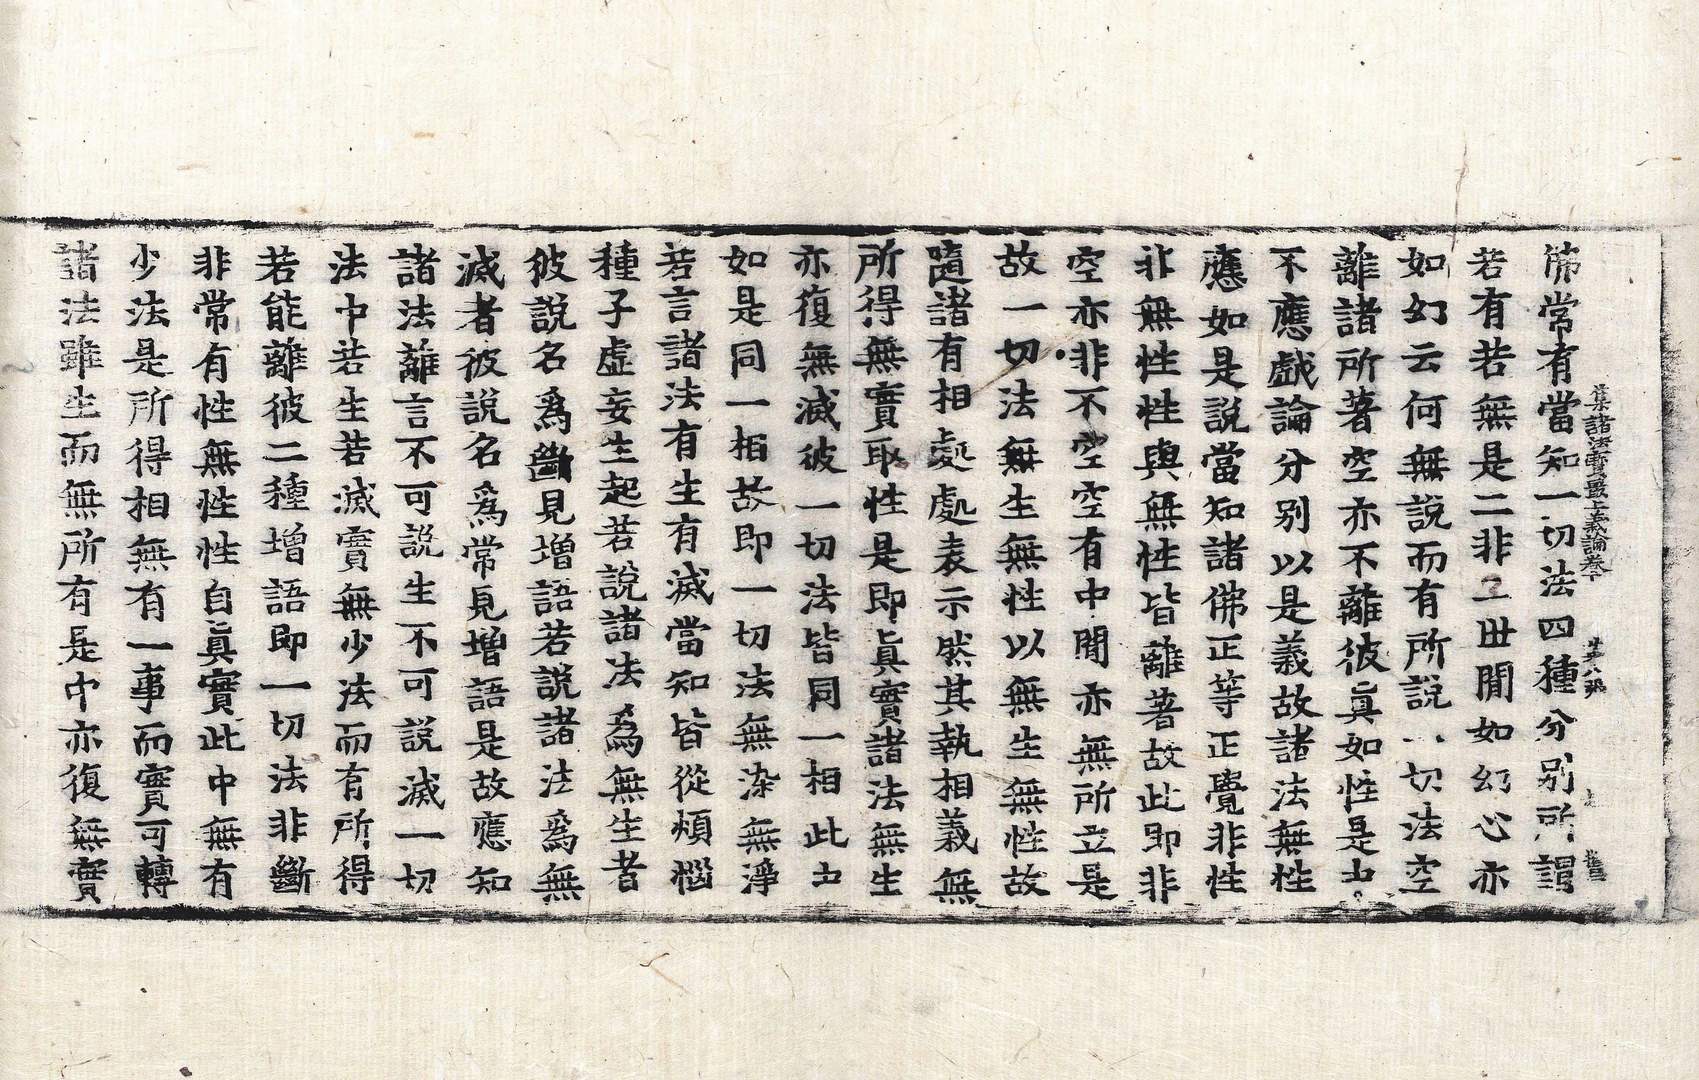 集諸法寶最上義論卷下 第八張
佛常有當知一切法四種分別所謂
若有若無是二非二世間如幻心亦
如幻云何無說而有所說一切法空
離諸所著空亦不離彼眞如性是中
不應戲論分別以是義故諸法無性
應如是說當知諸佛正等正覺非性
非無性性與無性皆離著故此即非
空亦非不空空有中間亦無所立是
故一切法無生無性以無生無性故
隨諸有相處處表示然其執相義無
所得無實取性是即眞實諸法無生
亦復無滅彼一切法皆同一相此中
如是同一相故即一切法無染無淨
若言諸法有生有滅當知皆從煩惱
種子虛妄生起若說諸法爲無生者
彼說名爲斷見增語若說諸法爲無
滅者彼說名爲常見增語是故應知
諸法離言不可說生不可說滅一切
法中若生若滅實無少法而有所得
若能離彼二種增語即一切法非斷
非常有性無性性自眞實此中無有
少法是所得相無有一事而實可轉
諸法雖生而無所有是中亦復無實